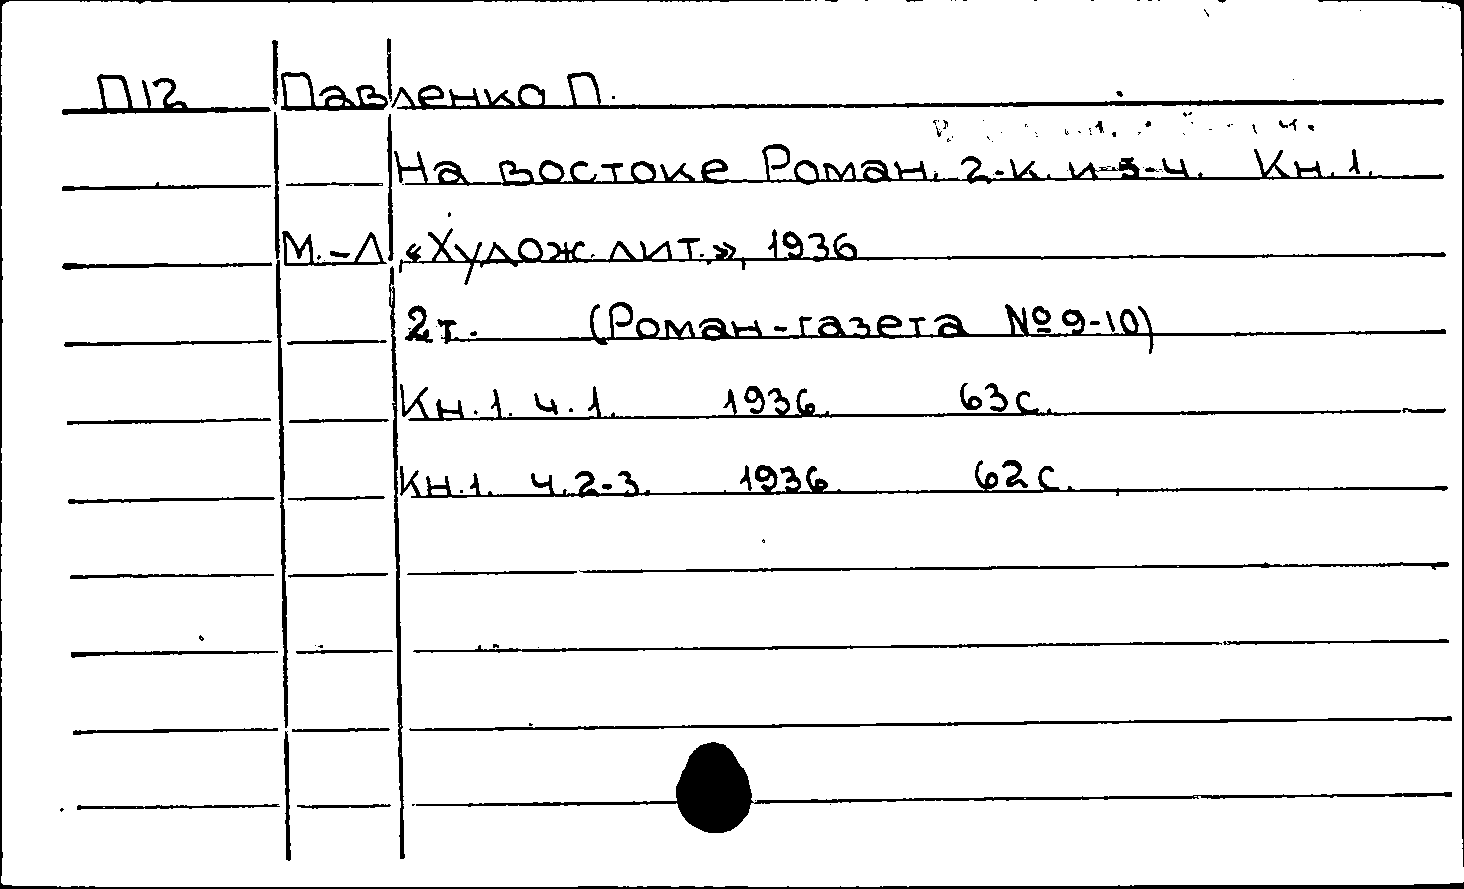 П12 Павленко П.
На востоке Роман. 2-к. и 5-ч. Кн. 1.
М.-Л, «Худож. лит.», 1936
2т. (Роман-газета № 9-10)
Кн. 1. ч. 1. 1936. 63с.
Кн. 1. ч. 2-3. 1936. 62с.